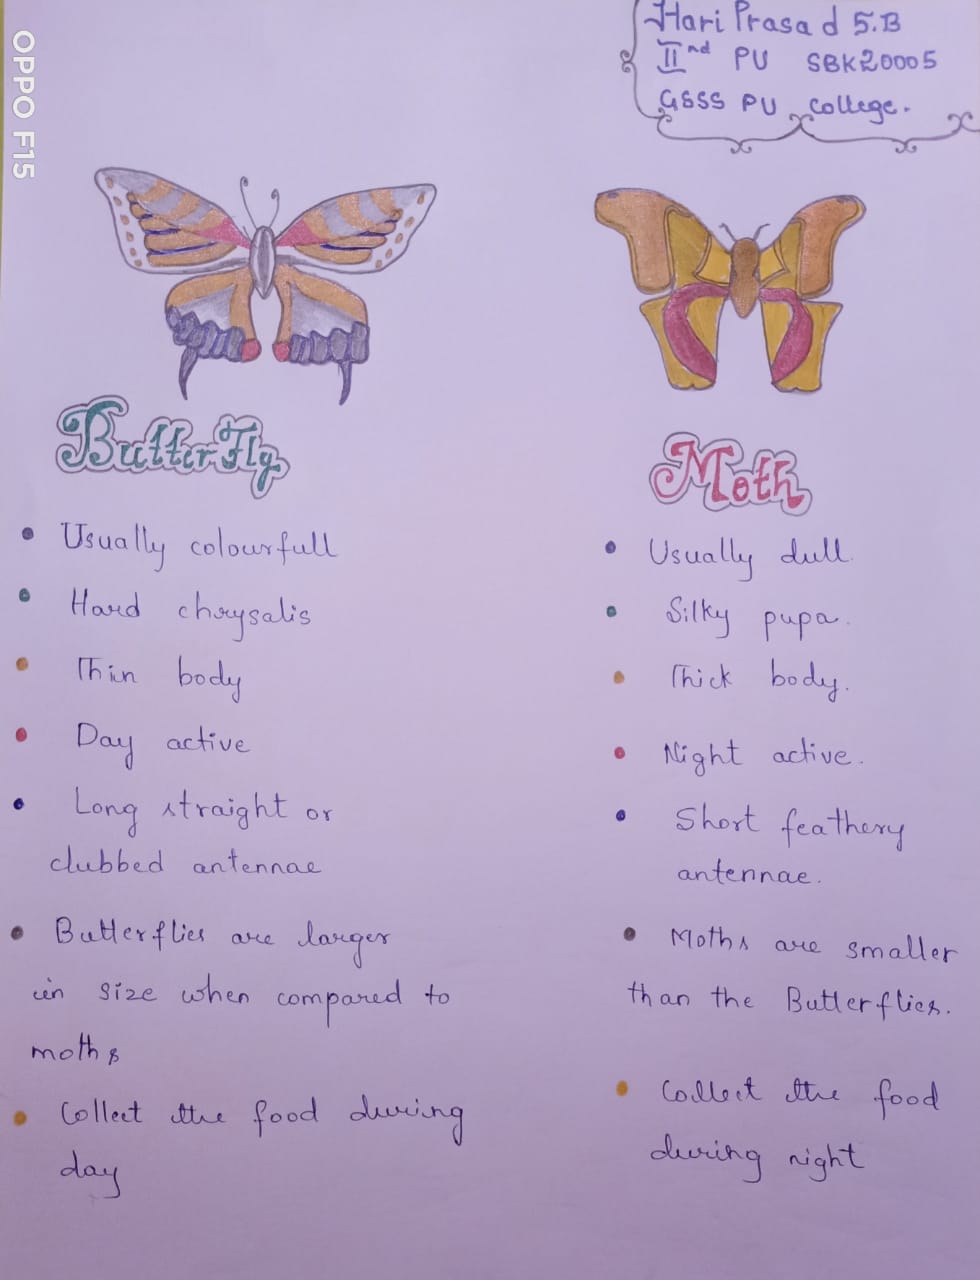 OPPO F15
Hari Prasad S.B
IInd PU SBK20005
GSSS PU College.
ButterFly
Usually colourfull
Hard chrysalis
Thin body
Day active
Long straight or
clubbed antennae
Butterflies are larger
in size when compared to
moths
Collect the food during
day
Moth
Usually dull.
Silky pupa.
Thick body.
Night active.
Short feathery
antennae.
Moths are smaller
than the Butterflies.
Collect the food
during night